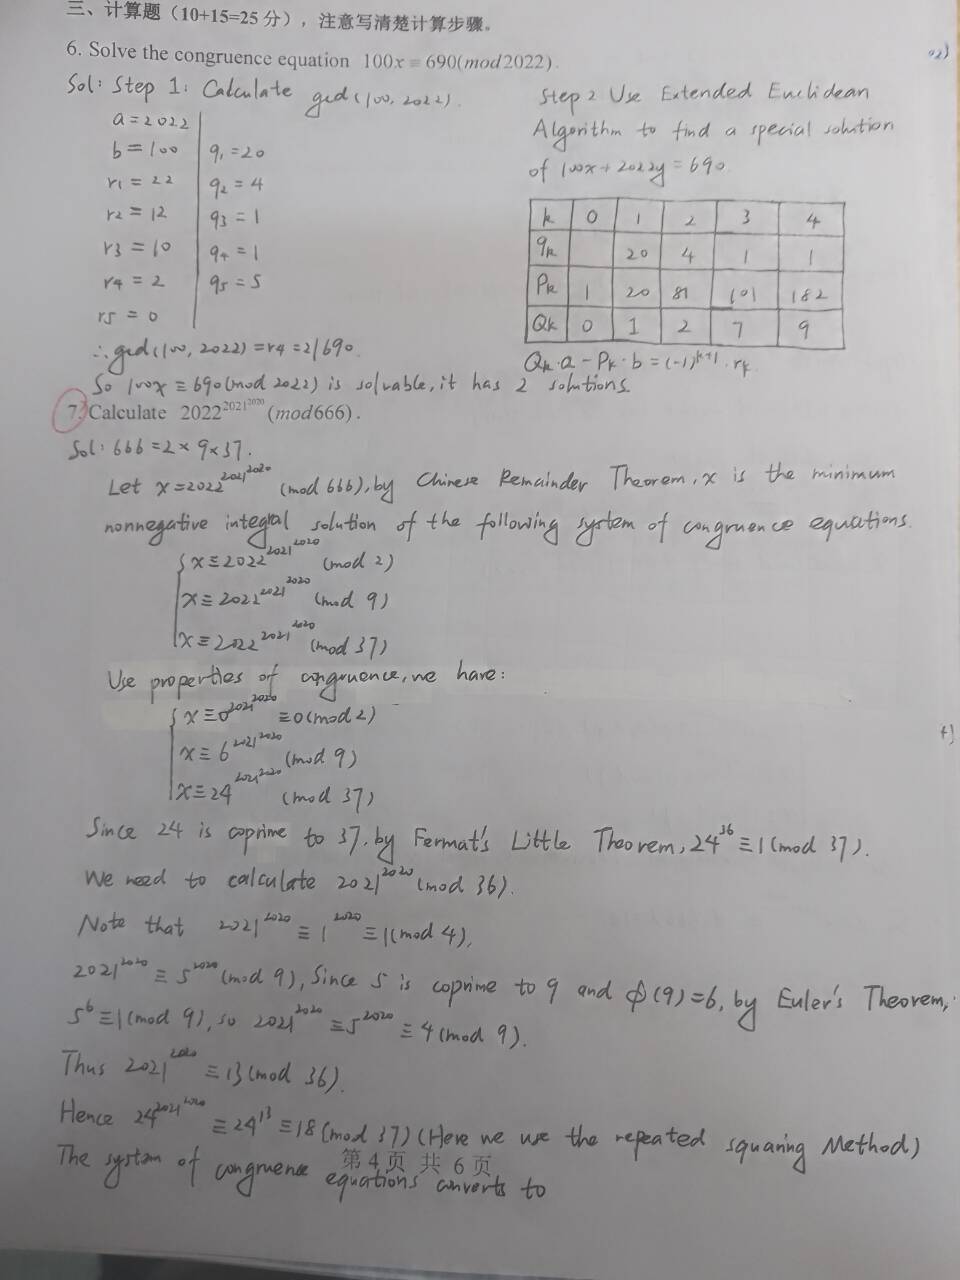 三、计算题（10+15=25 分），注意写清楚计算步骤。
6. Solve the congruence equation 100x ≡ 690(mod2022).
Sol: Step 1: Calculate gcd(100, 2022).
a=2022
b=100 q₁=20
r₁=22 q₂=4
r₂=12 q₃=1
r₃=10 q₄=1
r₄=2 q₅=5
r₅=0
∴gcd(100, 2022)=r₄=2|690.
So 100x≡690(mod 2022) is solvable, it has 2 solutions.
Step 2 Use Extended Euclidean
Algorithm to find a special solution
of 100x+2022y=690.
k 0 1 2 3 4
qₖ 20 4 1 1
Pₖ 1 20 81 101 182
Qₖ 0 1 2 7 9
Qₖ·a-Pₖ·b=(-1)ᵏ⁺¹·rₖ
7. Calculate 2022^2021^2020 (mod666).
Sol: 666=2×9×37.
Let x=2022^2021^2020 (mod 666), by Chinese Remainder Theorem, x is the minimum
nonnegative integral solution of the following system of congruence equations.
x≡2022^2021^2020 (mod 2)
x≡2022^2021^2020 (mod 9)
x≡2022^2021^2020 (mod 37)
Use properties of congruence, we have:
x≡0^2021^2020≡0(mod 2)
x≡6^2021^2020 (mod 9)
x≡24^2021^2020 (mod 37)
Since 24 is coprime to 37, by Fermat's Little Theorem, 24^36≡1(mod 37).
We need to calculate 2021^2020 (mod 36).
Note that 2021^2020≡1^2020≡1(mod 4),
2021^2020≡5^2020(mod 9), Since 5 is coprime to 9 and ϕ(9)=6, by Euler's Theorem,
5^6≡1(mod 9), so 2021^2020≡5^2020≡4(mod 9).
Thus 2021^2020≡13(mod 36).
Hence 24^2021^2020≡24^13≡18(mod 37)(Here we use the repeated squaring Method)
The system of congruence equations converts to
第 4 页 共 6 页